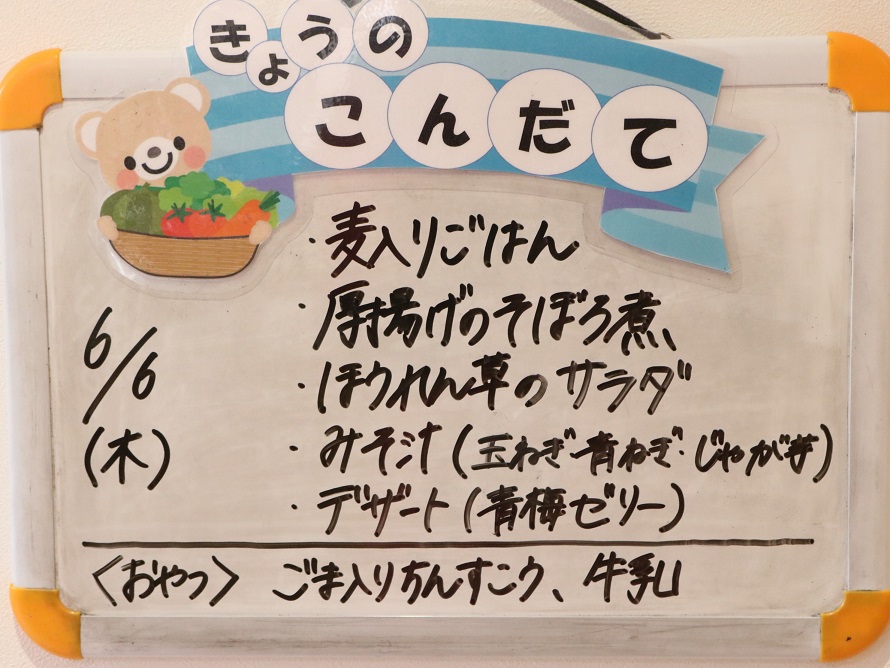 きょうの
こんだて
・麦入りごはん
・厚揚げのそぼろ煮
6/6
・ほうれん草のサラダ
(木)
・みそ汁(玉ねぎ・青ねぎ・じゃが芋)
・デザート(青梅ゼリー)
〈おやつ〉 ごま入りちんすこう、牛乳